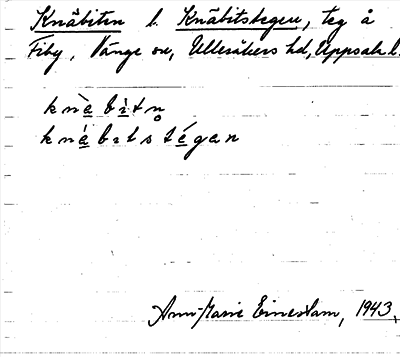 Knäbiten l. Knäbitstegen, teg å
Fiby, Vänge sn, Ulleråkers hd, Uppsala l.
knä̀bìtn̥
knä́bitstégan
Ann-Marie Einestam, 1943.